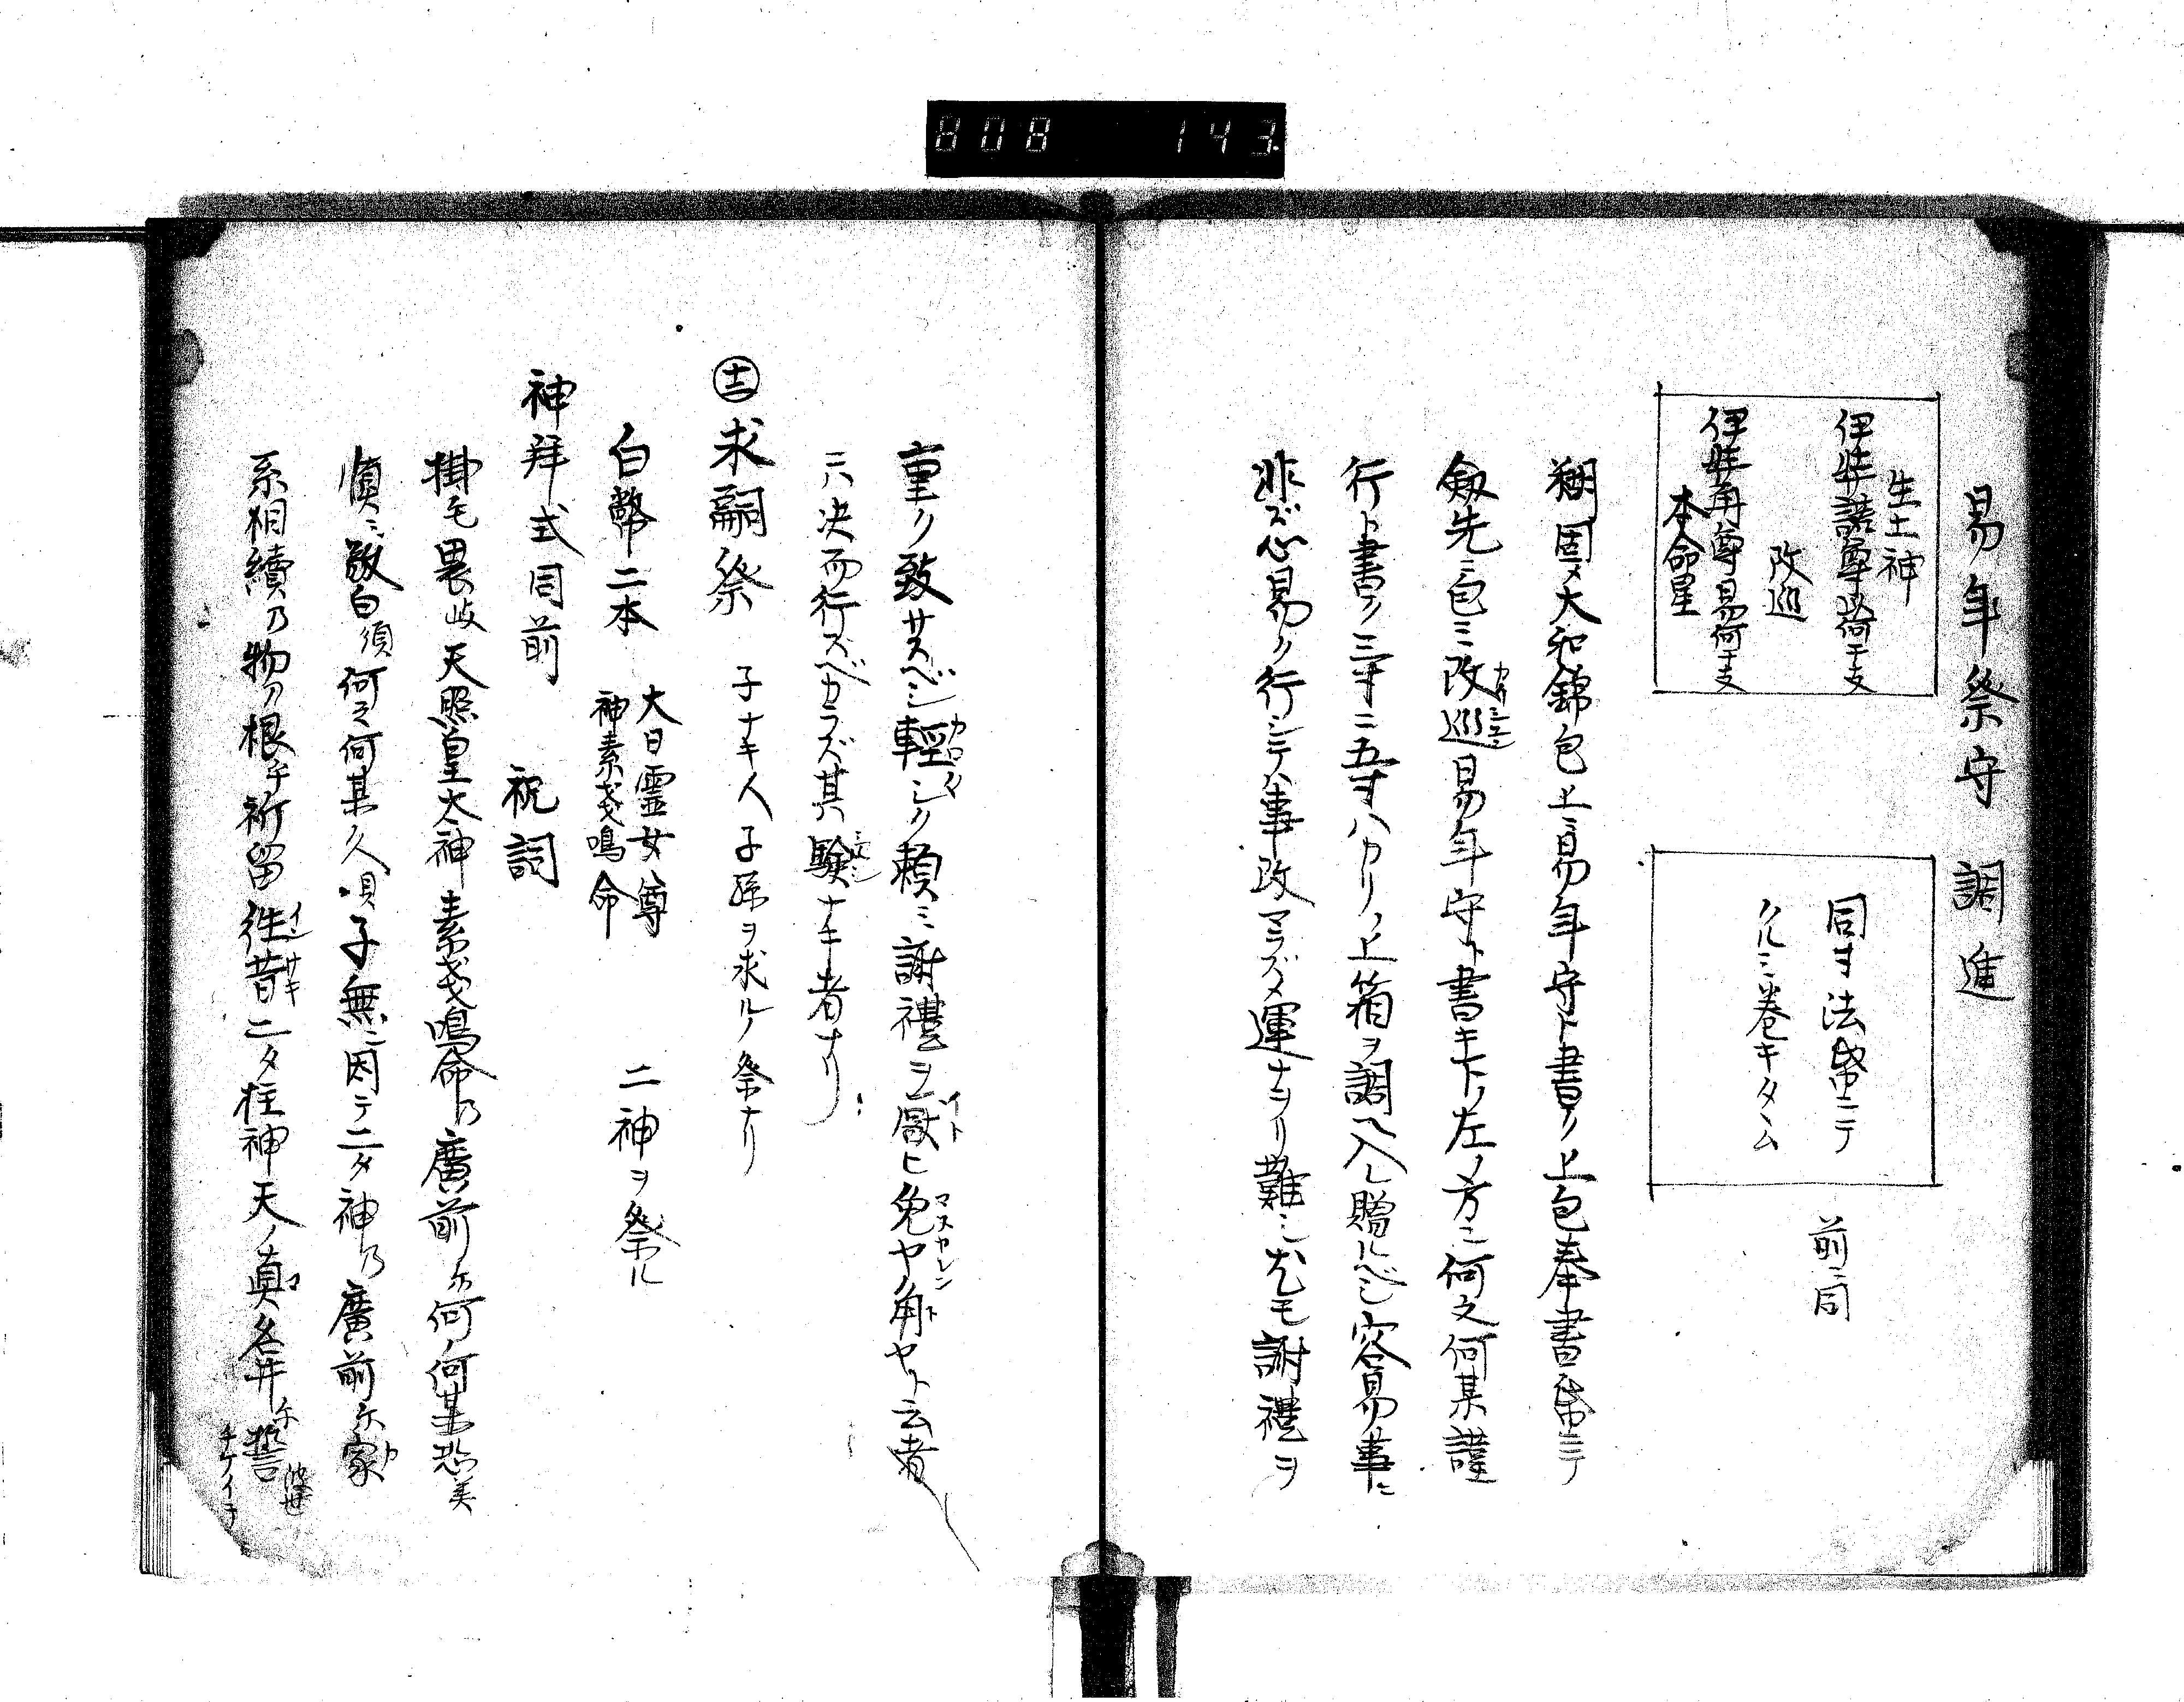 808 143
易年祭守 調進
生土神
伊弉諾尊 何干支
改巡
伊弉冉尊 易何干支
本命星
同寸法帋ニテ
クルミ巻キタタム
前ニ同
糊固メ大和錦包上ニ易年守ト書ク上包奉書帋ニテ
剱先ニ包ミ改巡易年守ト書キ下ノ左ノ方ニ何之何某謹
行ト書ク三寸ニ五寸ハカリノ上箱ヲ調ヘ入レ贈ルベシ容易事ニ
非ズ心易ク行シテハ事改マラズメ運ナヲリ難シ尤モ謝禮ヲ
重ク致サスベシ輕シク頼ミ謝禮ヲ厭ヒ免ヤ角ヤト云者
ニハ决而行ズベカラズ其験ナキ者ナリ
十二 求嗣祭 子ナキ人子孫ヲ求ルノ祭ナリ
白幣二本 大日霊女尊 神素戔嗚命 二神ヲ祭ル
神拜式同前 祝詞
掛毛畏岐天照皇太神素戔嗚命乃廣前尓何ノ何某恐美
慎ミ敬白須何之何某久子無ニ因テ二タ神乃廣前尓家
系相續乃物ノ根乎祈留徃昔二タ柱神天ノ真名井尓誓